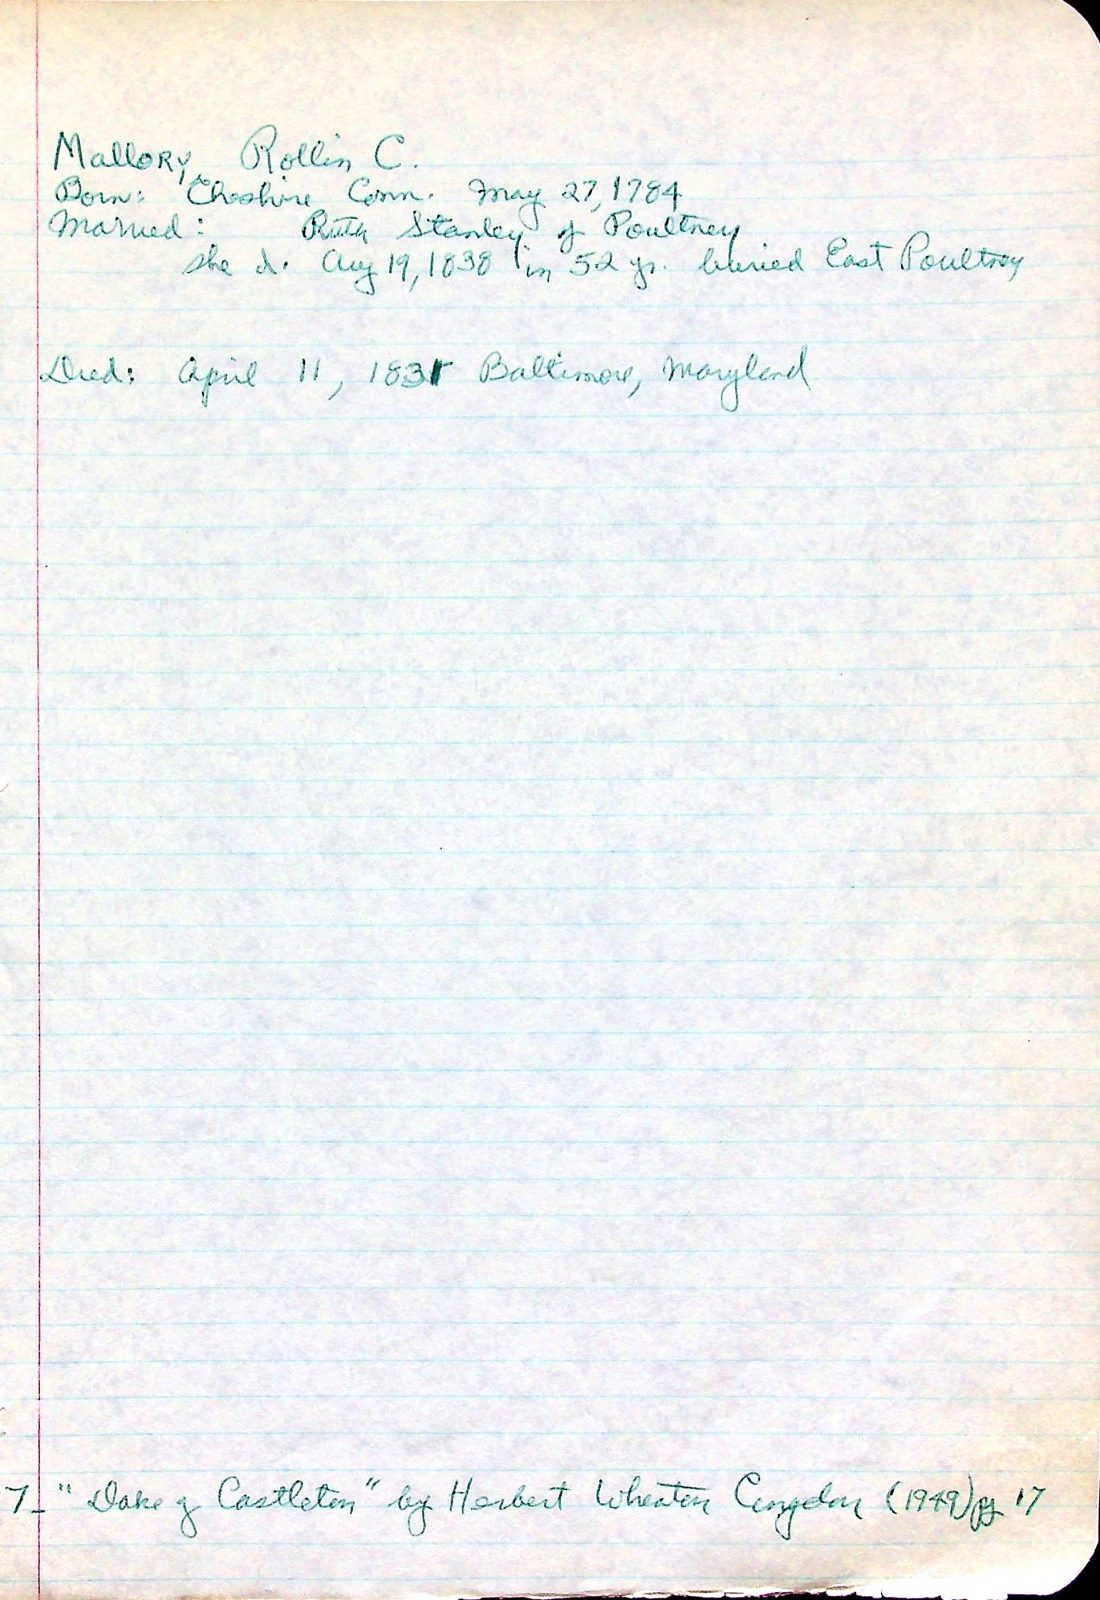 Mallory, Rollin C.
Born: Cheshire Conn. May 27, 1784
Married: Ruth Stanley of Poultney
she d. Aug 19, 1838 in 52 yr. buried East Poultney
Died: April 11, 1831 Baltimore, Maryland
7- "Dake of Castleton" by Herbert Wheaton Congdon (1949) pg 17